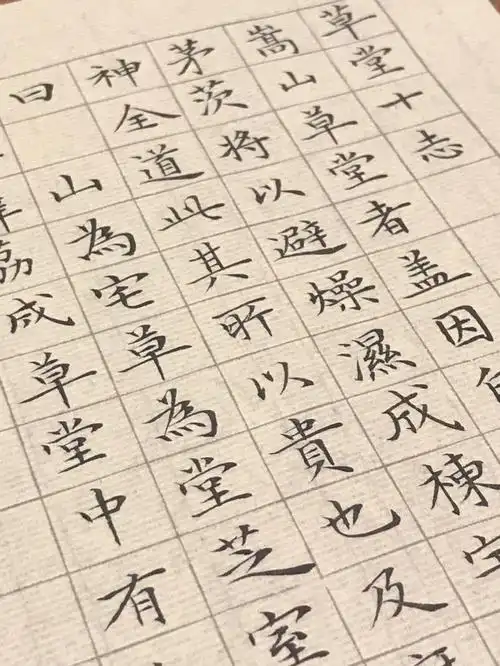 草堂十志
嵩山草堂者盖因
茅茨将以避燥濕成棟
神全道此其所以貴也及
曰山為宅草為堂芝室
成草堂中有